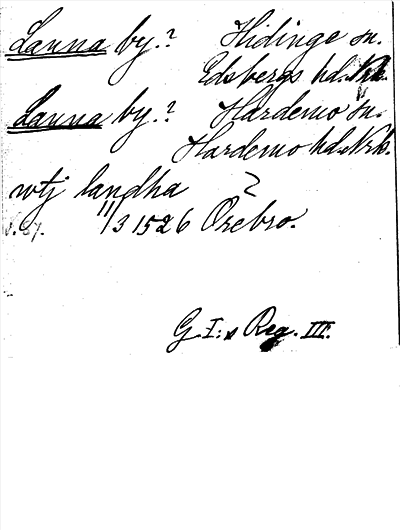 Lanna by.? Hidinge sn.
Edsbergs hd. Nrk.
Lanna by.? Hardemo sn.
Hardemo hd. Nrk.
wtj landha ?
11/3 1526 Örebro.
G. I:s Reg. III.